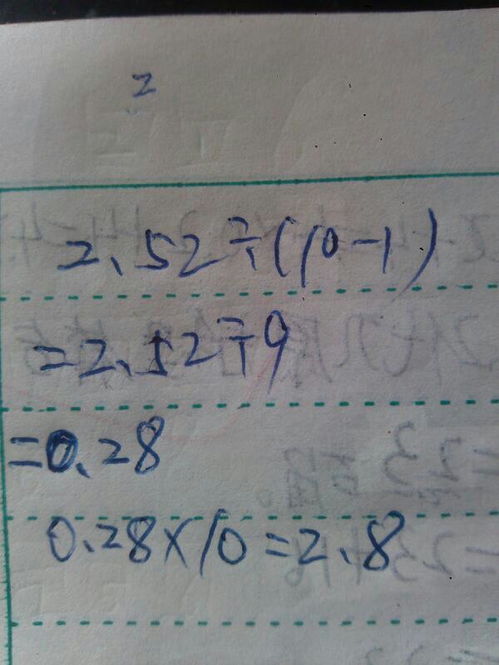 2
2.52÷(10-1)
=2.52÷9
=0.28
0.28×10=2.8